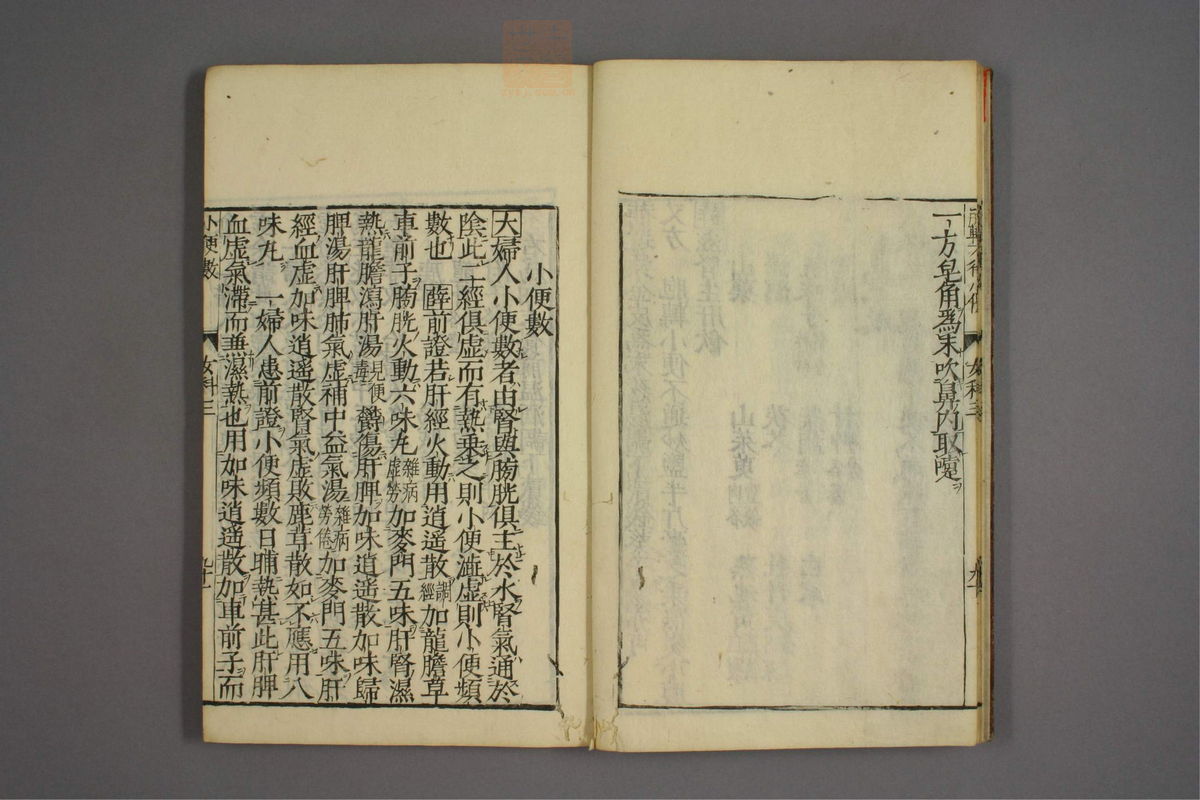 一方皂角爲末吹鼻内取嚏
女科三
小便數
大婦人小便數者由腎與膀胱俱主於水腎氣通於
陰此二經俱虛而有熱乗之則小便澁虛則小便頻
數也 薛前證若肝經火動用逍遥散調經加龍膽草
車前子膀胱火動六味丸雜病虛勞加麥門五味肝腎濕
熱龍膽瀉肝湯見便毒欝傷肝脾加味逍遥散加味歸
脾湯肝脾肺氣虛補中益氣湯雜病勞倦加麥門五味肝
經血虛加味逍遥散腎氣虛敗鹿茸散如不應用八
味丸 一婦人患前證小便頻數日晡熱甚此肝脾
血虛氣滯而兼濕熱也用加味逍遥散加車前子而
小便數
女科三